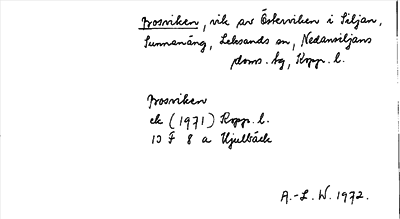 Prosviken, vik av Österviken i Siljan,
Sunnanäng, Leksands sn, Nedansiljans
doms. hg, Kopp. l.
Prosviken
ek (1971) Kopp. l.
13 F 8 a Hjulbäck
A.-L. W. 1972.